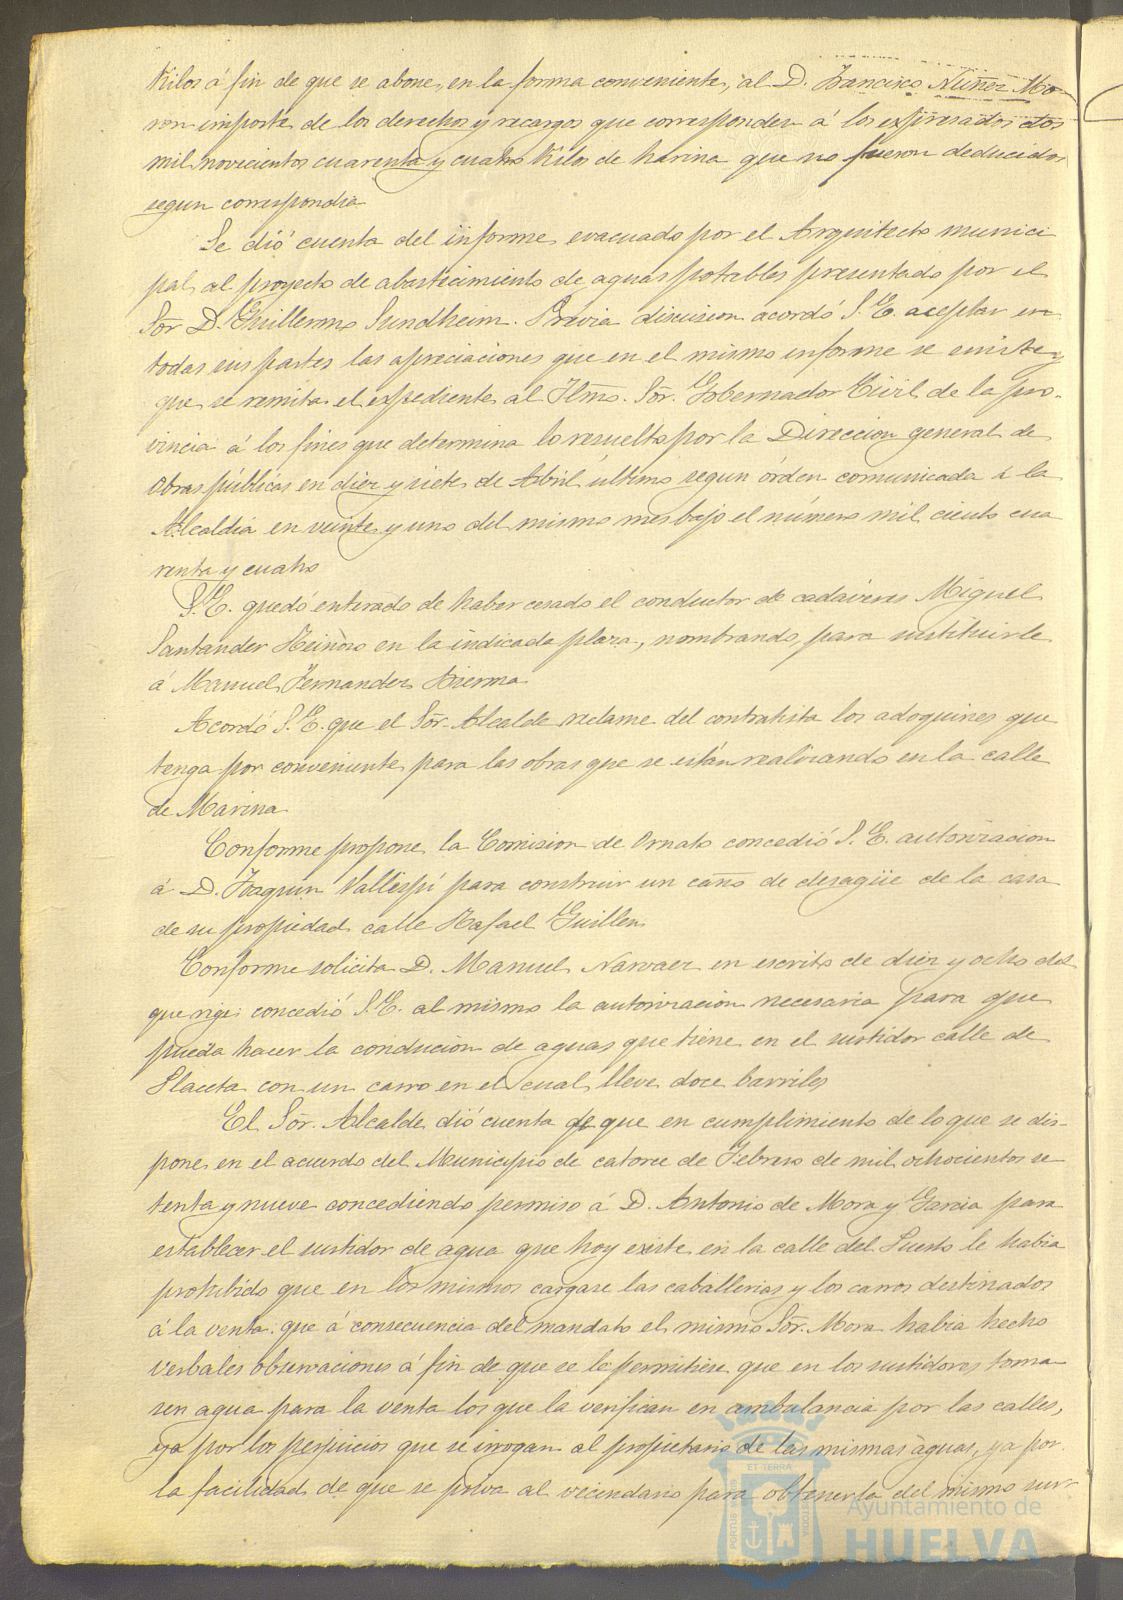 Kilos á fin de que se abone, en la forma conveniente, al D. Francisco Nuñez Mo-
ron importe de los derechos y recargos que corresponden á los expresados dos
mil novecientos cuarenta y cuatro Kilos de harina que no fueron deducidos
segun correspondia
Se dió cuenta del informe evacuado por el Arquitecto munici
pal al proyecto de abastecimiento de aguas potables presentado por el
Sõr D. Guillermo Sundheim. Previa discusion acordó S. E. aceptar en
todas sus partes las apreciaciones que en el mismo informe se emite y
que se remita el expediente al Ilmo. Sõr. Gobernador Civil de la pro-
vincia á los fines que determina lo resuelto por la Direccion general de
Obras públicas en diez y siete de Abril último segun órden comunicada á la
Alcaldia en veinte y uno del mismo mes bajo el número mil ciento cua
renta y cuatro
S. E. quedó enterado de haber cesado el conductor de cadáveres Miguel
Santander en la indicada plaza, nombrando, para sustituirle
á Manuel Fernandez
Acordó S. E. que el Sõr. Alcalde reclame del contratista los adoquines que
tenga por conveniente para las obras que se están realizando en la calle
de Marina
Conforme propone la Comision de Ornato concedió S. E. autorizacion
á D. Joaquin Vallespí para construir un caño de desagüe de la casa
de su propiedad calle Rafael Guillen
Conforme solicita D. Manuel Narvaez en escrito de diez y ocho del
que rige concedió S. E. al mismo la autorizacion necesaria para que
pueda hacer la conducion de aguas que tiene en el surtidor calle de
Placeta con un carro en el cual lleve doce barriles
El Sõr. Alcalde dió cuenta de que en cumplimiento de lo que se dis-
pone en el acuerdo del Municipio de catorce de Febrero de mil ochocientos se
tenta y nueve concediendo permiso á D. Antonio de Mora y Garcia para
establecer el surtidor de agua que hoy existe en la calle del Puerto le habia
prohibido que en los mismos cargase las caballerias y los carros destinados
á la venta: que á consecuencia del mandato el mismo Sõr. Mora habia hecho
verbales observaciones á fin de que se le permitiese que en los surtidores toma
sen agua para la venta los que la verifican en ambulancia por las calles,
ya por los perjuicios que se irrogan al propietario de las mismas aguas, ya por
la facilidad de que se priva al vecindario para obtenerla del mismo sur-
PORTUS MARIS
ET TERRA
CUSTODIA
Ayuntamiento de
HUELVA